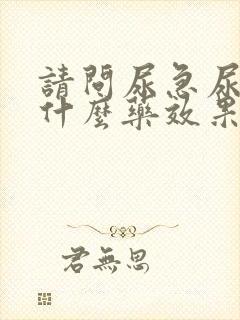 請問尿急尿
什麼藥效果
君無思